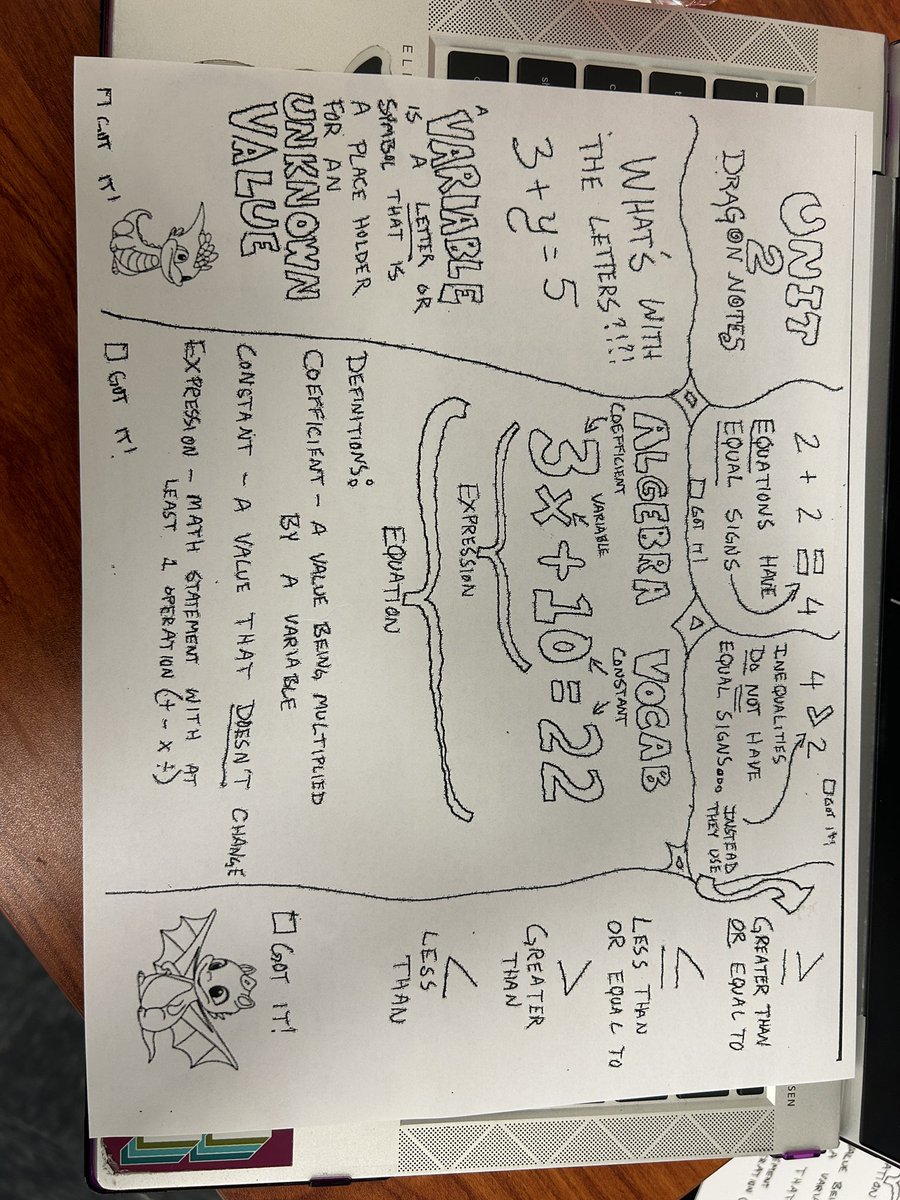 UNIT
2
DRAGON NOTES
2 + 2 = 4
EQUATIONS HAVE
EQUAL SIGNS
□ GOT IT!
4 > 2
□ GOT IT!
INEQUALITIES
DO NOT HAVE
EQUAL SIGNS... INSTEAD
THEY USE
≥
GREATER THAN
OR EQUAL TO
≤
LESS THAN
OR EQUAL TO
>
GREATER
THAN
<
LESS
THAN
□ GOT IT!
WHAT'S WITH
THE LETTERS?!?!
3 + y = 5
A
VARIABLE
IS A LETTER OR
SYMBOL THAT IS
A PLACE HOLDER
FOR AN
UNKNOWN
VALUE
□ GOT IT!
ALGEBRA VOCAB
COEFFICIENT VARIABLE CONSTANT
3x + 10 = 22
EXPRESSION
EQUATION
DEFINITIONS:
COEFFICIENT - A VALUE BEING MULTIPLIED
BY A VARIABLE
CONSTANT - A VALUE THAT DOESN'T CHANGE
EXPRESSION - MATH STATEMENT WITH AT
LEAST 1 OPERATION (+ - x ÷)
□ GOT IT!